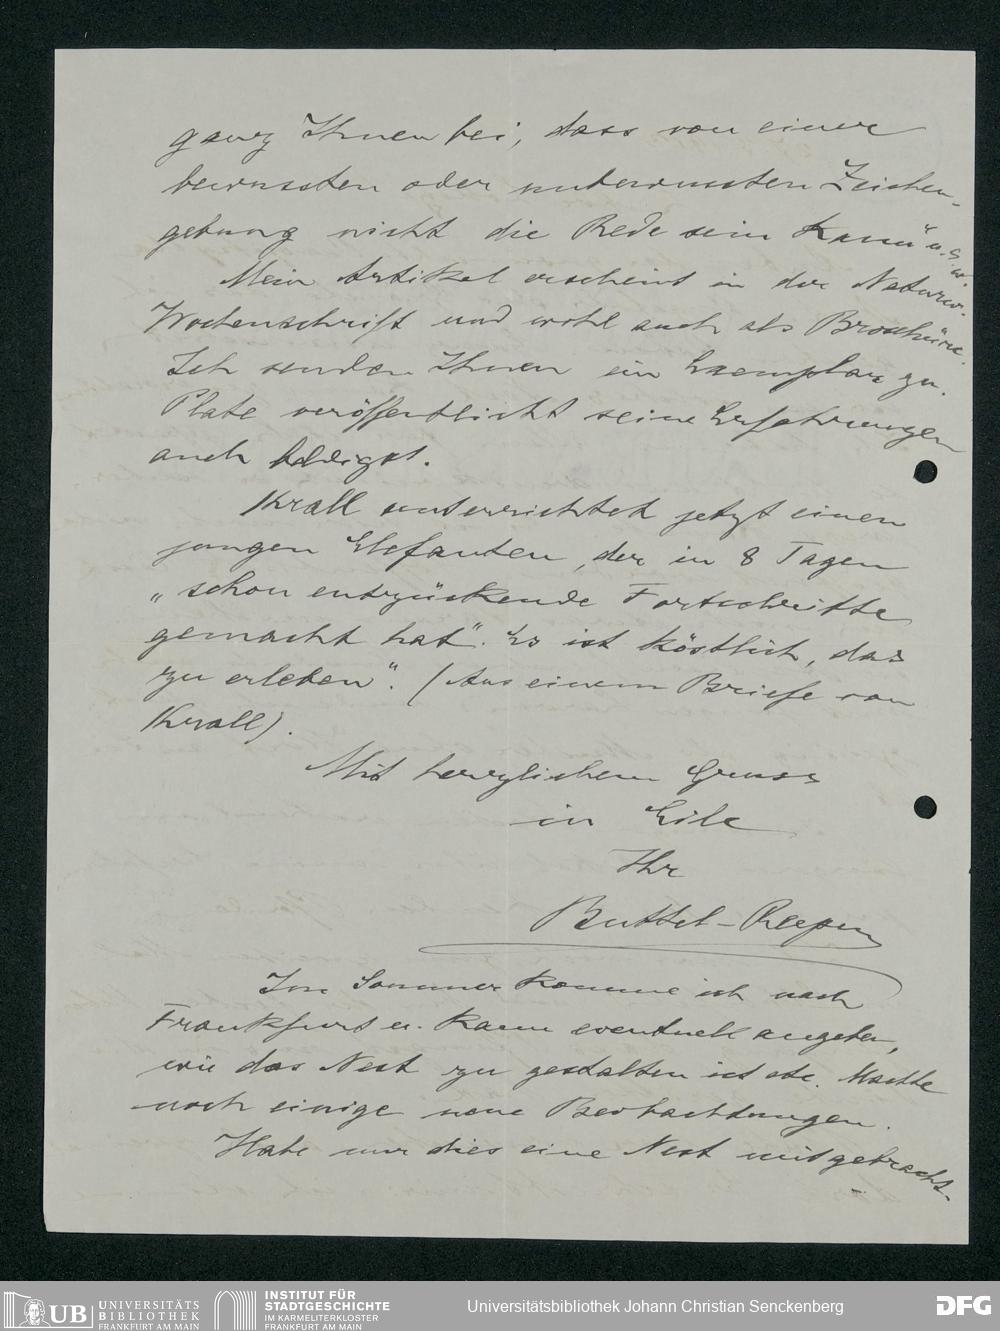 ganz Ihnen bei, dass von einer
bewussten oder unbewussten Zeichen-
gebung nicht die Rede sein kann" u.s.w.
Mein Artikel erscheint in der Naturw.
Wochenschrift und wohl auch als Broschüre.
Ich sende Ihnen ein Exemplar zu.
Plate veröffentlicht seine Erfahrungen
auch baldigst.
Krall unterrichtet jetzt einen
jungen Elefanten, der in 8 Tagen
„schon entzückende Fortschritte
gemacht hat". Es ist köstlich, das
zu erleben". (Aus einem Briefe von
Krall).
Mit herzlichem Gruss
in Eile
Ihr
Buttel-Reepen
Im Sommer komme ich nach
Frankfurt u. kann eventuell angeben,
wie das Nest zu gestalten ist etc. Machte
noch einige neue Beobachtungen.
Habe nur dies eine Nest mitgebracht.
UB UNIVERSITÄTS
BIBLIOTHEK
FRANKFURT AM MAIN
INSTITUT FÜR
STADTGESCHICHTE
IM KARMELITERKLOSTER
FRANKFURT AM MAIN
Universitätsbibliothek Johann Christian Senckenberg
DFG